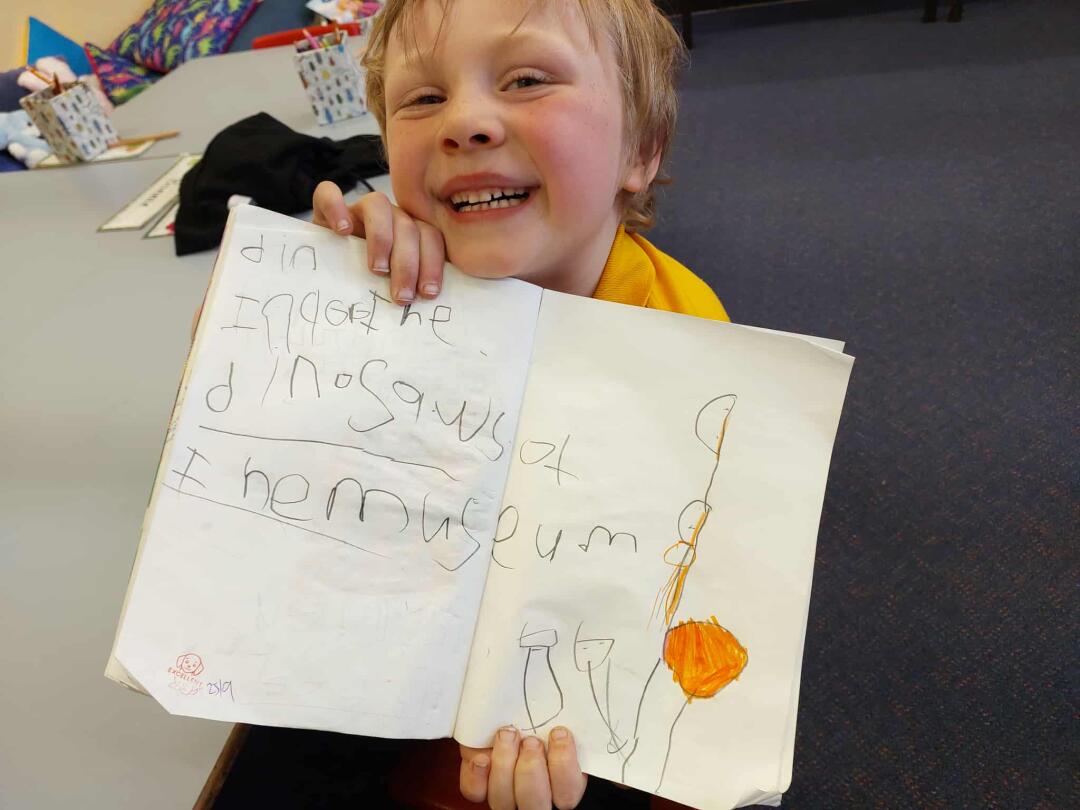 din
I qdor the.
dinosaws at
the museum
EXCELLENT
25/9